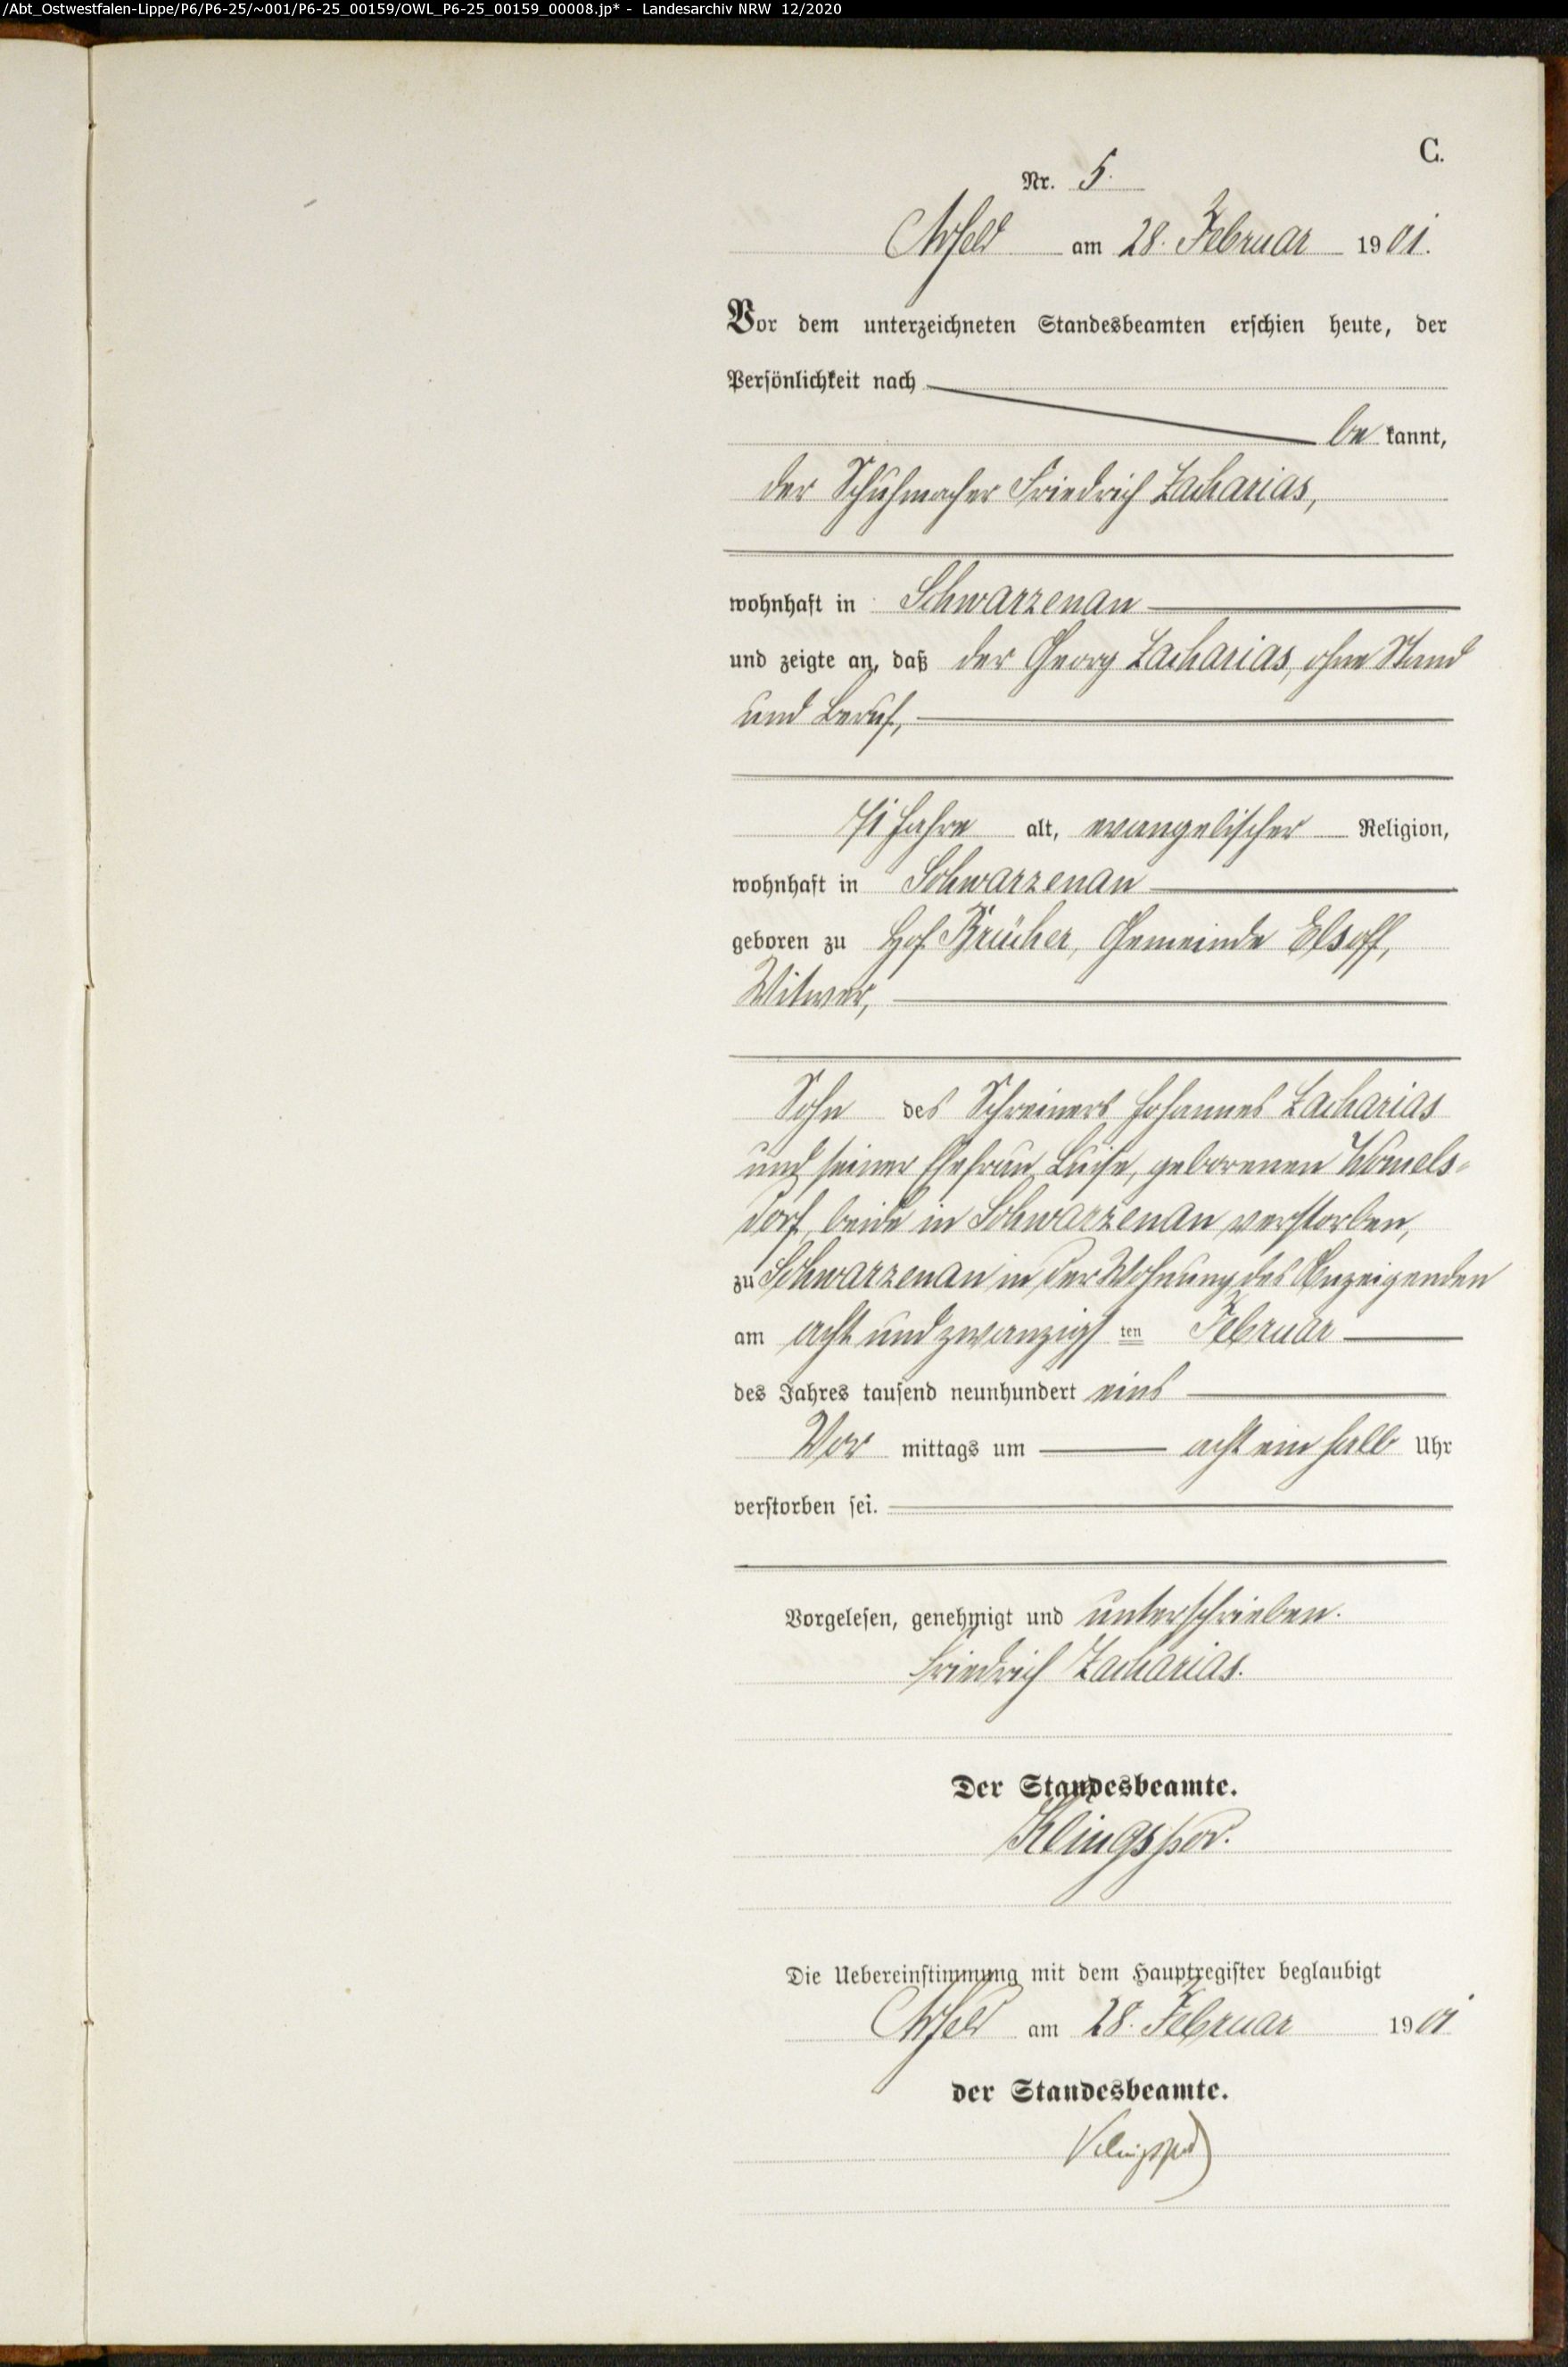 /Abt_Ostwestfalen-Lippe/P6/P6-25/~001/P6-25_00159/OWL_P6-25_00159_00008.jp* - Landesarchiv NRW 12/2020
C.
Nr. 5.
Arfeld am 28. Februar 1901.
Vor dem unterzeichneten Standesbeamten erschien heute, der
Persönlichkeit nach
bekannt,
der Schuhmacher Friedrich Zacharias,
wohnhaft in Schwarzenau
und zeigte an, daß der Georg Zacharias, ohne Stand
und Beruf,
71 Jahre alt, evangelischer Religion,
wohnhaft in Schwarzenau
geboren zu Hof Brücher, Gemeinde Elsoff,
Witwer,
Sohn des Schreiners Johannes Zacharias
und seiner Ehefrau Luise, geborenen Womels-
dorf, beide in Schwarzenau verstorben,
zu Schwarzenau in der Wohnung des Anzeigenden
am acht und zwanzigsten Februar
des Jahres tausend neunhundert eins
Vormittags um acht ein halb Uhr
verstorben sei.
Vorgelesen, genehmigt und unterschrieben.
Friedrich Zacharias.
Der Standesbeamte.
Klingspor.
Die Uebereinstimmung mit dem Hauptregister beglaubigt
Arfeld am 28. Februar 1901
der Standesbeamte.
Klingspor